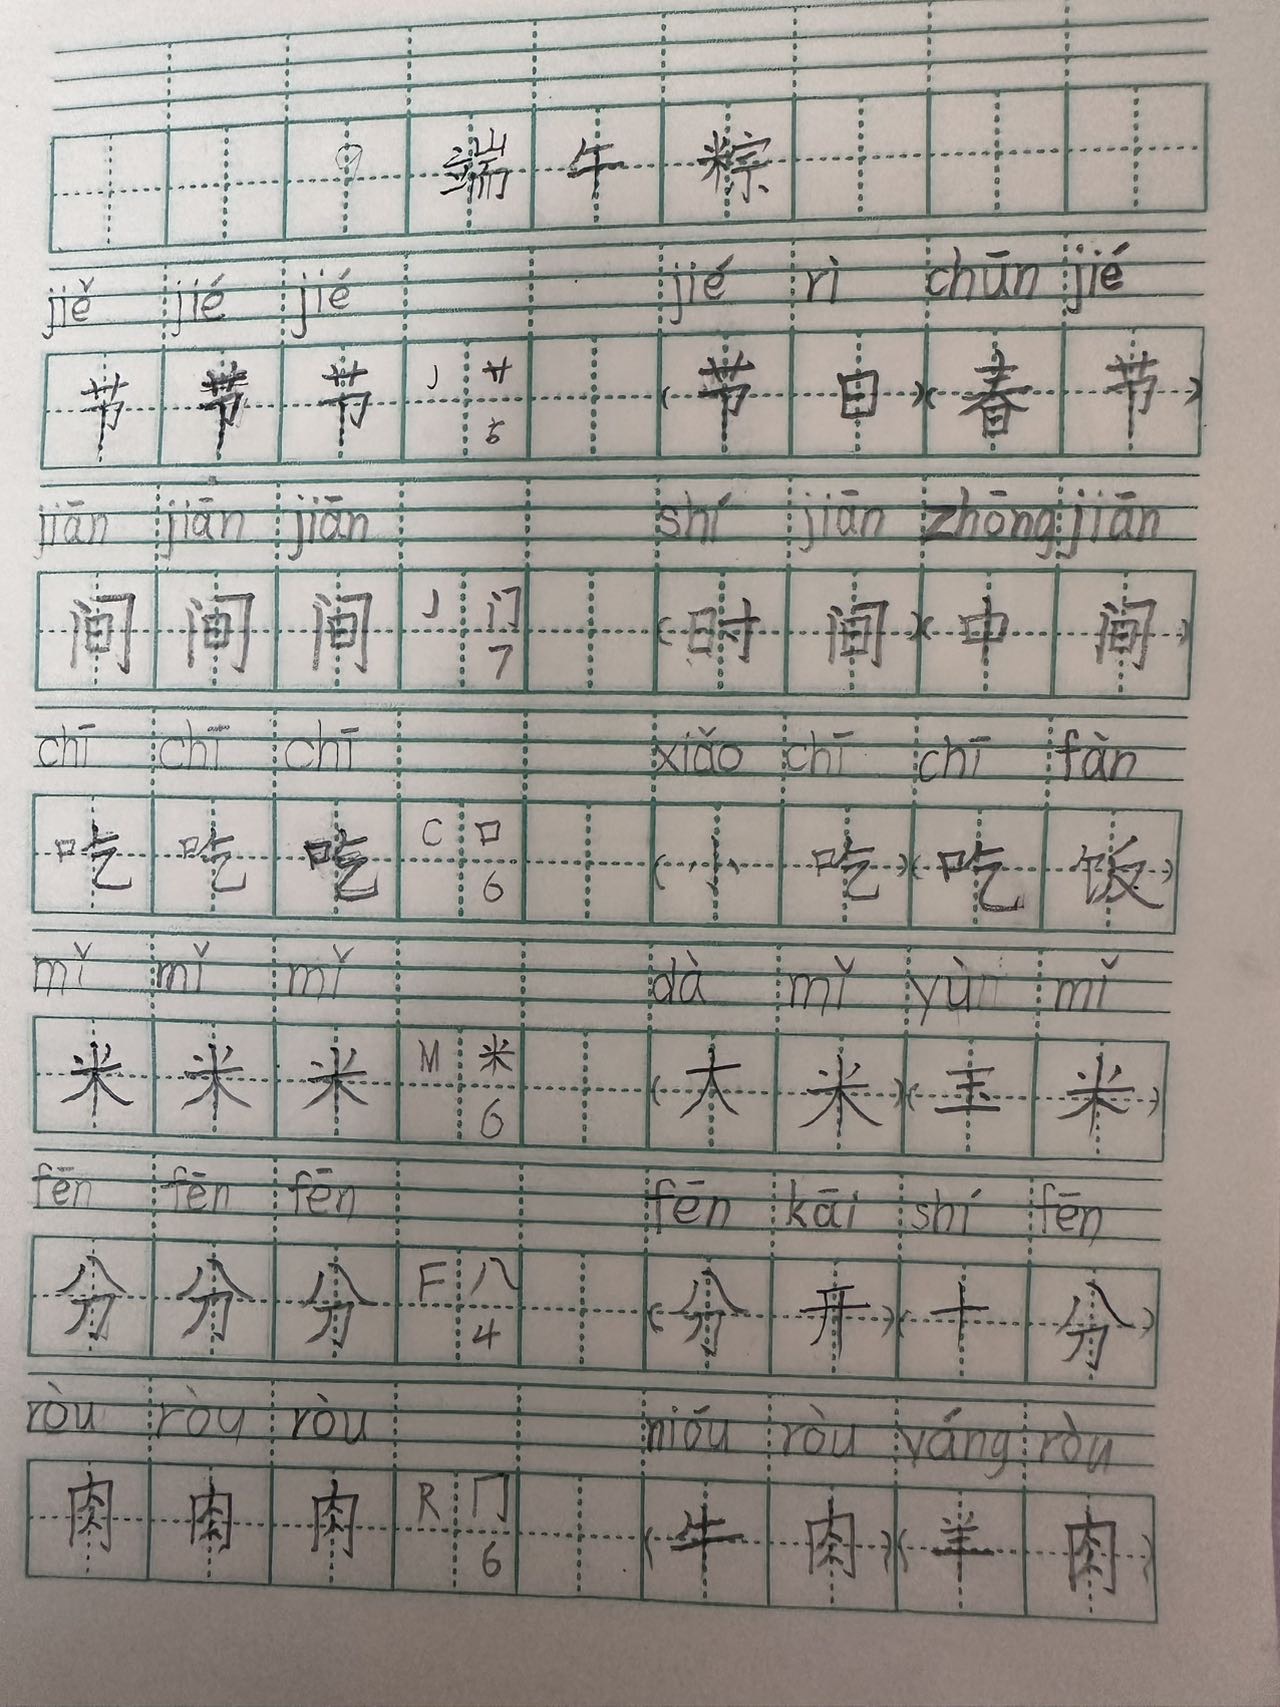 9 端 午 粽
jiě jié jié jié rì chūn jié
节 节 节 J 艹 5 (节 日)(春 节)
jiān jiān jiān shí jiān zhōng jiān
间 间 间 J 门 7 (时 间)(中 间)
chī chī chī xiǎo chī chī fàn
吃 吃 吃 C 口 6 (小 吃)(吃 饭)
mǐ mǐ mǐ dà mǐ yùn mǐ
米 米 米 M 米 6 (大 米)(玉 米)
fēn fēn fēn fēn kāi shí fēn
分 分 分 F 八 4 (分 开)(十 分)
ròu ròu ròu nióu ròu yáng ròu
肉 肉 肉 R 冂 6 (牛 肉)(羊 肉)